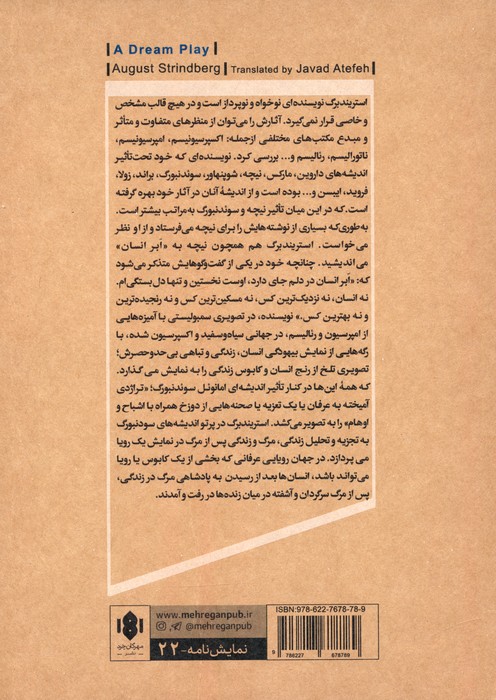 A Dream Play
August Strindberg | Translated by Javad Atefeh
استریندبرگ نویسنده‌ای نوخواه و نوپرداز است و در هیچ قالب مشخص
و خاصی قرار نمی‌گیرد. آثارش را می‌توان از منظرهای متفاوت و متأثر
و مبدع مکتب‌های مختلفی ازجمله: اکسپرسیونیسم، امپرسیونیسم،
ناتورالیسم، رئالیسم و... بررسی کرد. نویسنده‌ای که خود تحت‌تأثیر
اندیشه‌های داروین، مارکس، نیچه، شوپنهاور، سوئدنبورگ، براند، زولا،
فروید، ایبسن و... بوده است و از اندیشهٔ آنان در آثار خود بهره گرفته
است. که در این میان تأثیر نیچه و سوئدنبورگ به‌مراتب بیشتر است.
به‌طوری‌که بسیاری از نوشته‌هایش را برای نیچه می‌فرستاد و از او نظر
می‌خواست. استریندبرگ هم همچون نیچه به «اَبر انسان»
می‌اندیشید. چنانچه خود در یکی از گفت‌وگوهایش متذکر می‌شود
که: «اَبر انسان در دلم جای دارد، اوست نخستین و تنها دل بستگی‌ام.
نه انسان، نه نزدیک‌ترین کس، نه مسکین‌ترین کس و نه رنجیده‌ترین
و نه بهترین کس.» نویسنده، در تصویری سمبولیستی با آمیزه‌هایی
از امپرسیون و رئالیسم، در جهانی سیاه‌وسفید و اکسپرسیون شده، با
رگه‌هایی از نمایش بیهودگی انسان، زندگی و تباهی بی‌حدوحصرش؛
تصویری تلخ از رنج انسان و کابوس زندگی را به نمایش می گذارد.
که همهٔ این‌ها در کنار تأثیر اندیشه‌ای امانوئل سوئدنبورگ؛ «تراژدی
آمیخته به عرفان یا یک تعزیه با صحنه‌هایی از دوزخ همراه با اشباح و
اوهام» را به تصویر می‌کشد. استریندبرگ در پرتو اندیشه‌های سودنبورگ
به تجزیه و تحلیل زندگی، مرگ و زندگی پس از مرگ در نمایش یک رویا
می پردازد. در جهان رویایی عرفانی که بخشی از یک کابوس یا رویا
می‌تواند باشد، انسان‌ها بعد از رسیدن به پادشاهی مرگ در زندگی،
پس از مرگ سرگردان و آشفته در میان زنده‌ها در رفت و آمدند.
www.mehreganpub.ir
@mehreganpub
نمایش‌نامه-۲۲
مهرگان خرد
ISBN: 978-622-7678-78-9
9 786227 678789